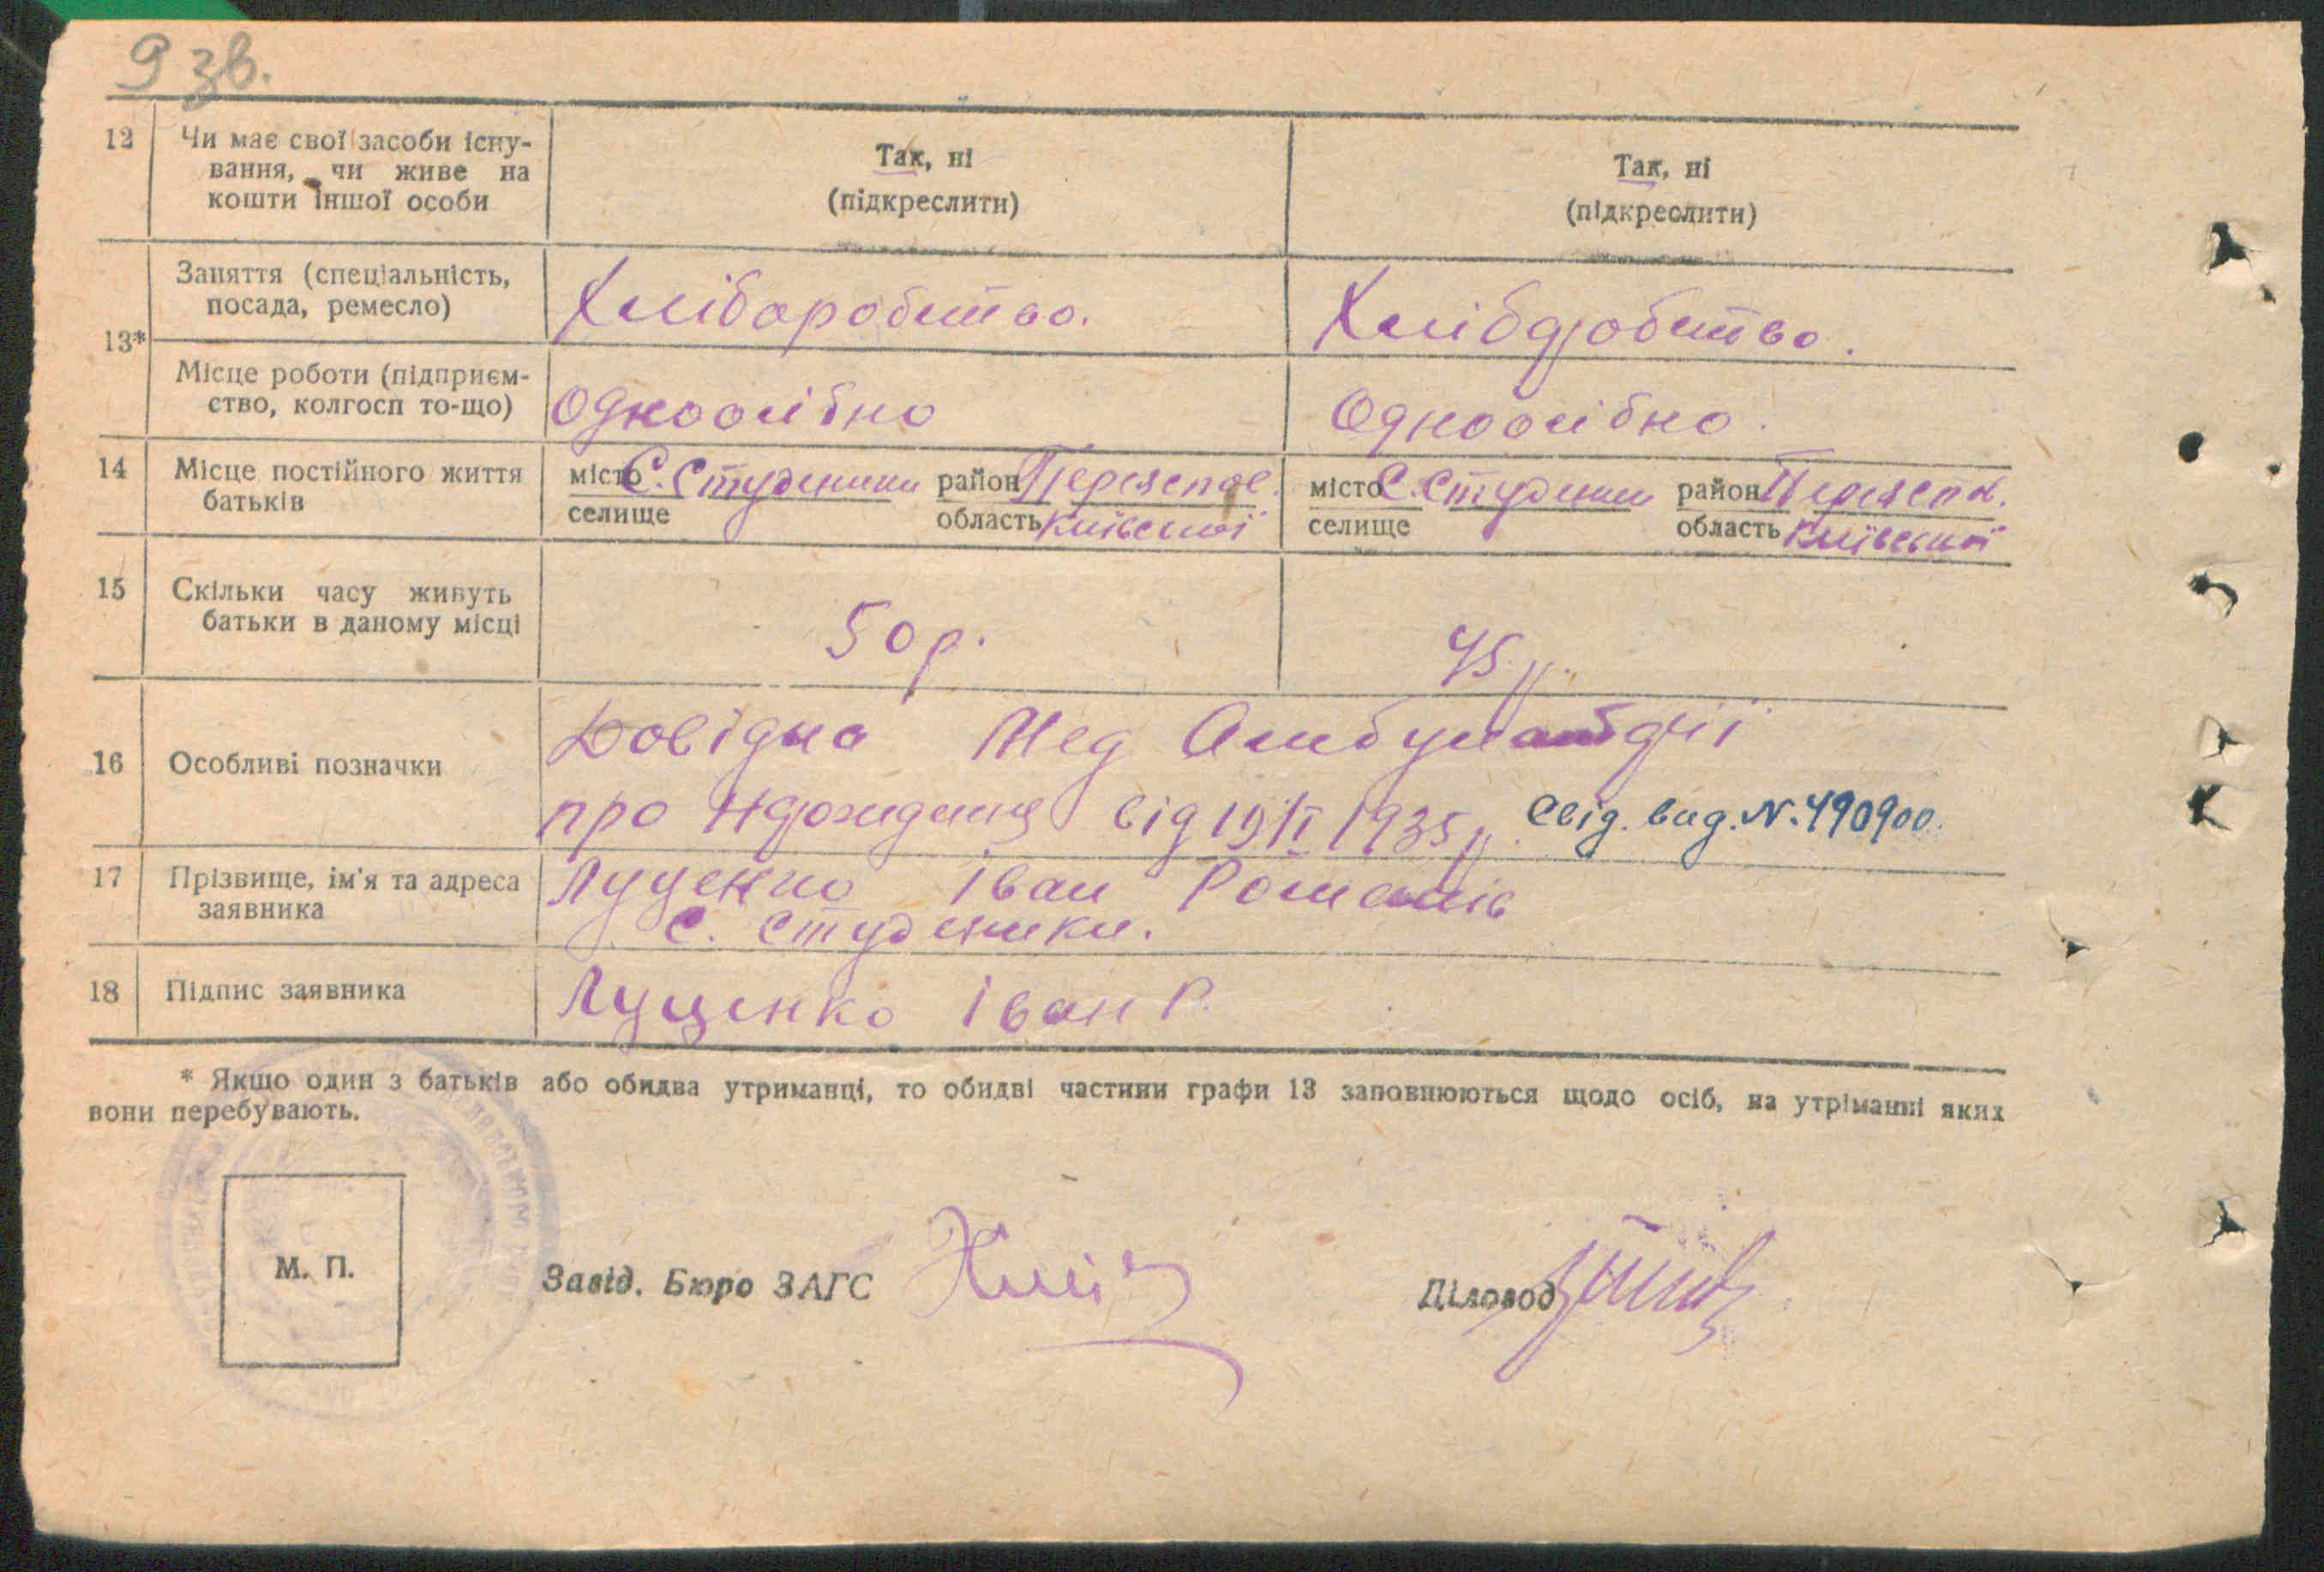 9 зв.
12 Чи має свої засоби існу- Так, ні Так, ні
вання, чи живе на (підкреслити) (підкреслити)
кошти іншої особи
13*
Заняття (спеціальність, Хліборобство. Хліборобство.
посада, ремесло)
Місце роботи (підприєм- Одноосібно Одноосібно.
ство, колгосп то-що)
14 Місце постійного життя місто С. Студеники район Переяслов. місто С. Студеники район Переясл.
батьків селище область Київської селище область Київської
15 Скільки часу живуть
батьки в даному місці 50 р. 45 р.
16 Особливі позначки Довідка Мед Амбулаторії
про Нарождення від 19/I 1935 р. Свід. вид. N. 490900.
17 Прізвище, ім'я та адреса Луценко Іван Романів
заявника С. Студеники.
18 Підпис заявника Луценко Іван Р.
* Якщо один з батьків або обидва утриманці, то обидві частини графи 13 заповнюються щодо осіб, на утріманні яких
вони перебувають.
М. П.
Завід. Бюро ЗАГС Діловод